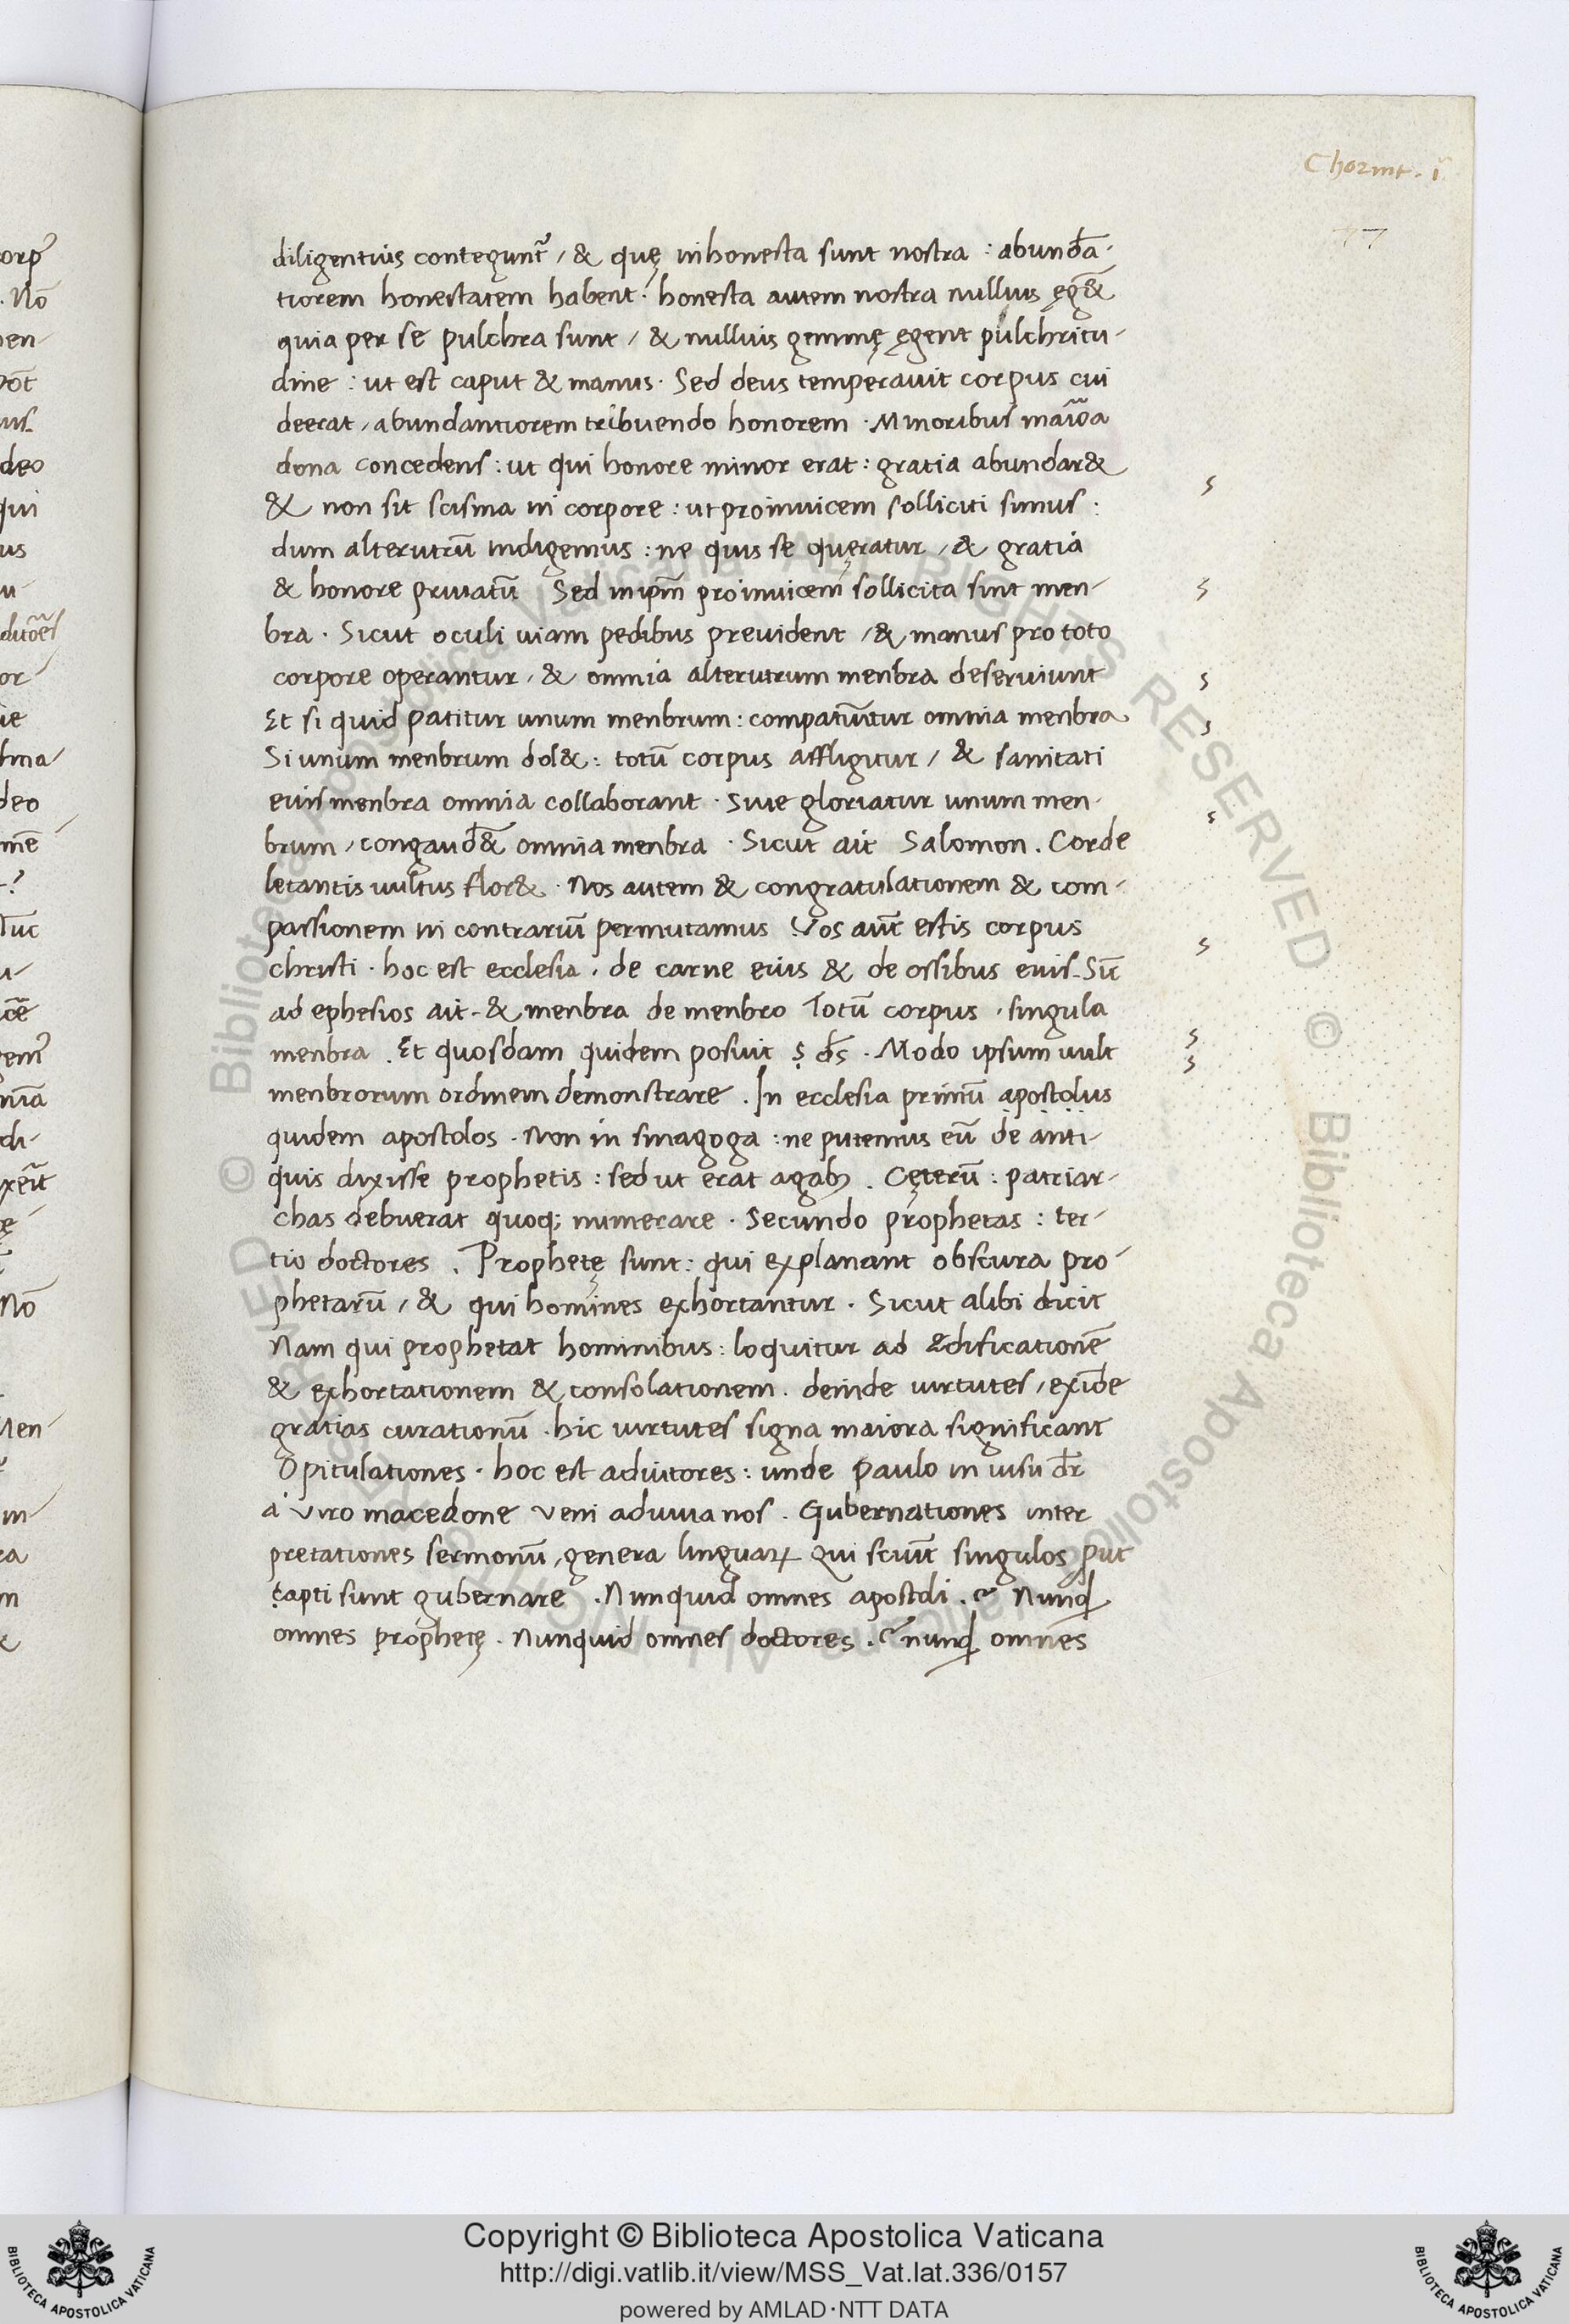 Chorint. i
77
diligentius contegunt᷑ / & quę inhonesta sunt nostra : abundā-
tiorem honestatem habent. honesta autem nostra nullius ęg&
quia per se pulchra sunt / & nullius gemmę ęgent pulchritu-
dine : ut est caput & manus. Sed deus temperauit corpus cui
deerat / abundantiorem tribuendo honorem . Minoribus maiora
dona concedens : ut qui honore minor erat : gratia abundar&
& non sit scisma in corpore : ut proinuicem solliciti simus :
dum alterutrū indigemus : ne quis se queratur / & gratia
& honore priuatū Sed inip̄m proinuicem sollicita sint men-
bra . Sicut oculi uiam pedibus preuident / & manus pro toto
corpore operantur / & omnia alterutrum menbra deseruiunt
Et si quid patitur unum menbrum : compatiuntur omnia menbra
Si unum menbrum dol& : totū corpus affligitur / & sanitati
euis menbra omnia collaborant . Siue gloriatur unum men-
brum / congaud& omnia menbra . Sicut ait Salomon . Corde
letantis uultus flor& . Nos autem & congratulationem & com-
passionem in contrariū permutamus Vos aūt estis corpus
christi . hoc est ecclesia . de carne eius & de ossibus euis . Sic̄
ad ephesios ait . & menbra de menbro Totū corpus . singula
menbra . Et quosdam quidem posuit ⸵ ds̄ . Modo ipsum uult
menbrorum ordinem demonstrare . In ecclesia primū apostolus
quidem apostolos . Non in sinagoga : ne putemus eū de anti-
quis dixisse prophetis : sed ut erat agabꝫ . Cęterū : patriar-
chas debuerat quoq; numerare . Secundo prophetas : ter-
tio doctores . Prophetę sunt : qui explanant obscura pro-
phetarū / & qui homines exhortantur . Sicut alibi dicit
Nam qui prophetat hominibus : loquitur ad ædificationē
& exhortationem & consolationem . deinde uirtutes / exīde
gratias curationū . hic uirtutes signa maiora significant
Opitulationes . hoc est adiutores : unde paulo in uisu dr̄
a uiro macedone veni adiuua nos . Gubernationes inter
pretationes sermonū / genera linguaꝝ qui sciūt singulos put
capti sunt gubernare . Nunquid omnes apostoli . Nunqd
omnes prophetę . Nunquid omnes doctores . nunqd omnes
Copyright © Biblioteca Apostolica Vaticana
http://digi.vatlib.it/view/MSS_Vat.lat.336/0157
powered by AMLAD·NTT DATA